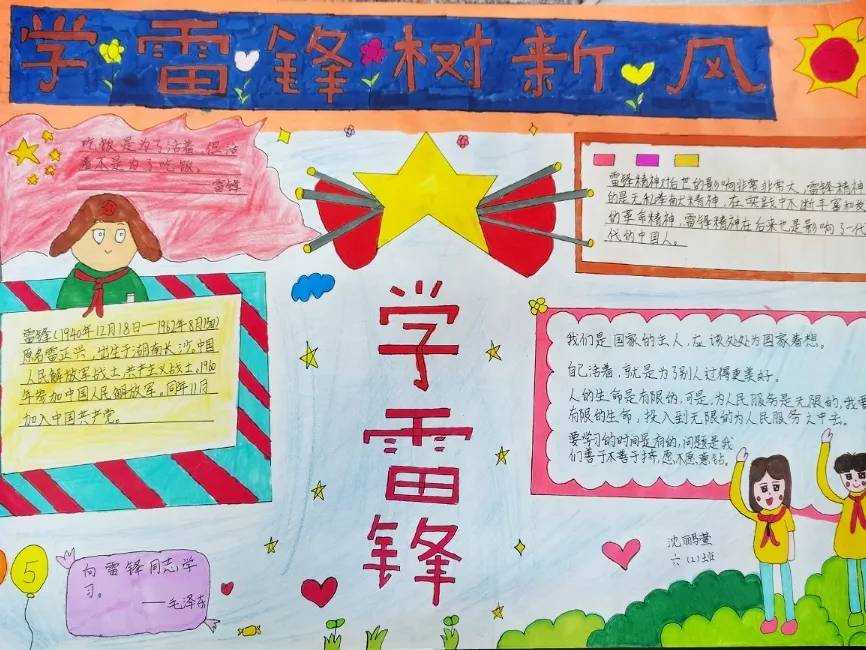 学雷锋树新风
吃饭是为了活着，但活
着不是为了吃饭。
雷锋
雷锋精神对后世的影响非常非常大，雷锋精神
的是无私奉献精神，在实践中不断丰富和发
的革命精神，雷锋精神在后来也是影响了一代
代的中国人。
雷锋(1940年12月18日—1962年8月15日)
原名雷正兴，出生于湖南长沙。中国
人民解放军战士，共产主义战士，1960
年参加中国人民解放军。同年11月
加入中国共产党。
学
雷
锋
我们是国家的主人，应该处处为国家着想。
自己活着，就是为了别人过得更美好。
人的生命是有限的，可是，为人民服务是无限的，我要
有限的生命，投入到无限的为人民服务之中去。
要学习的时间是有的，问题是我
们善于不善于挤，愿不愿意钻。
5
向雷锋同志学
习。
——毛泽东
六(2)班